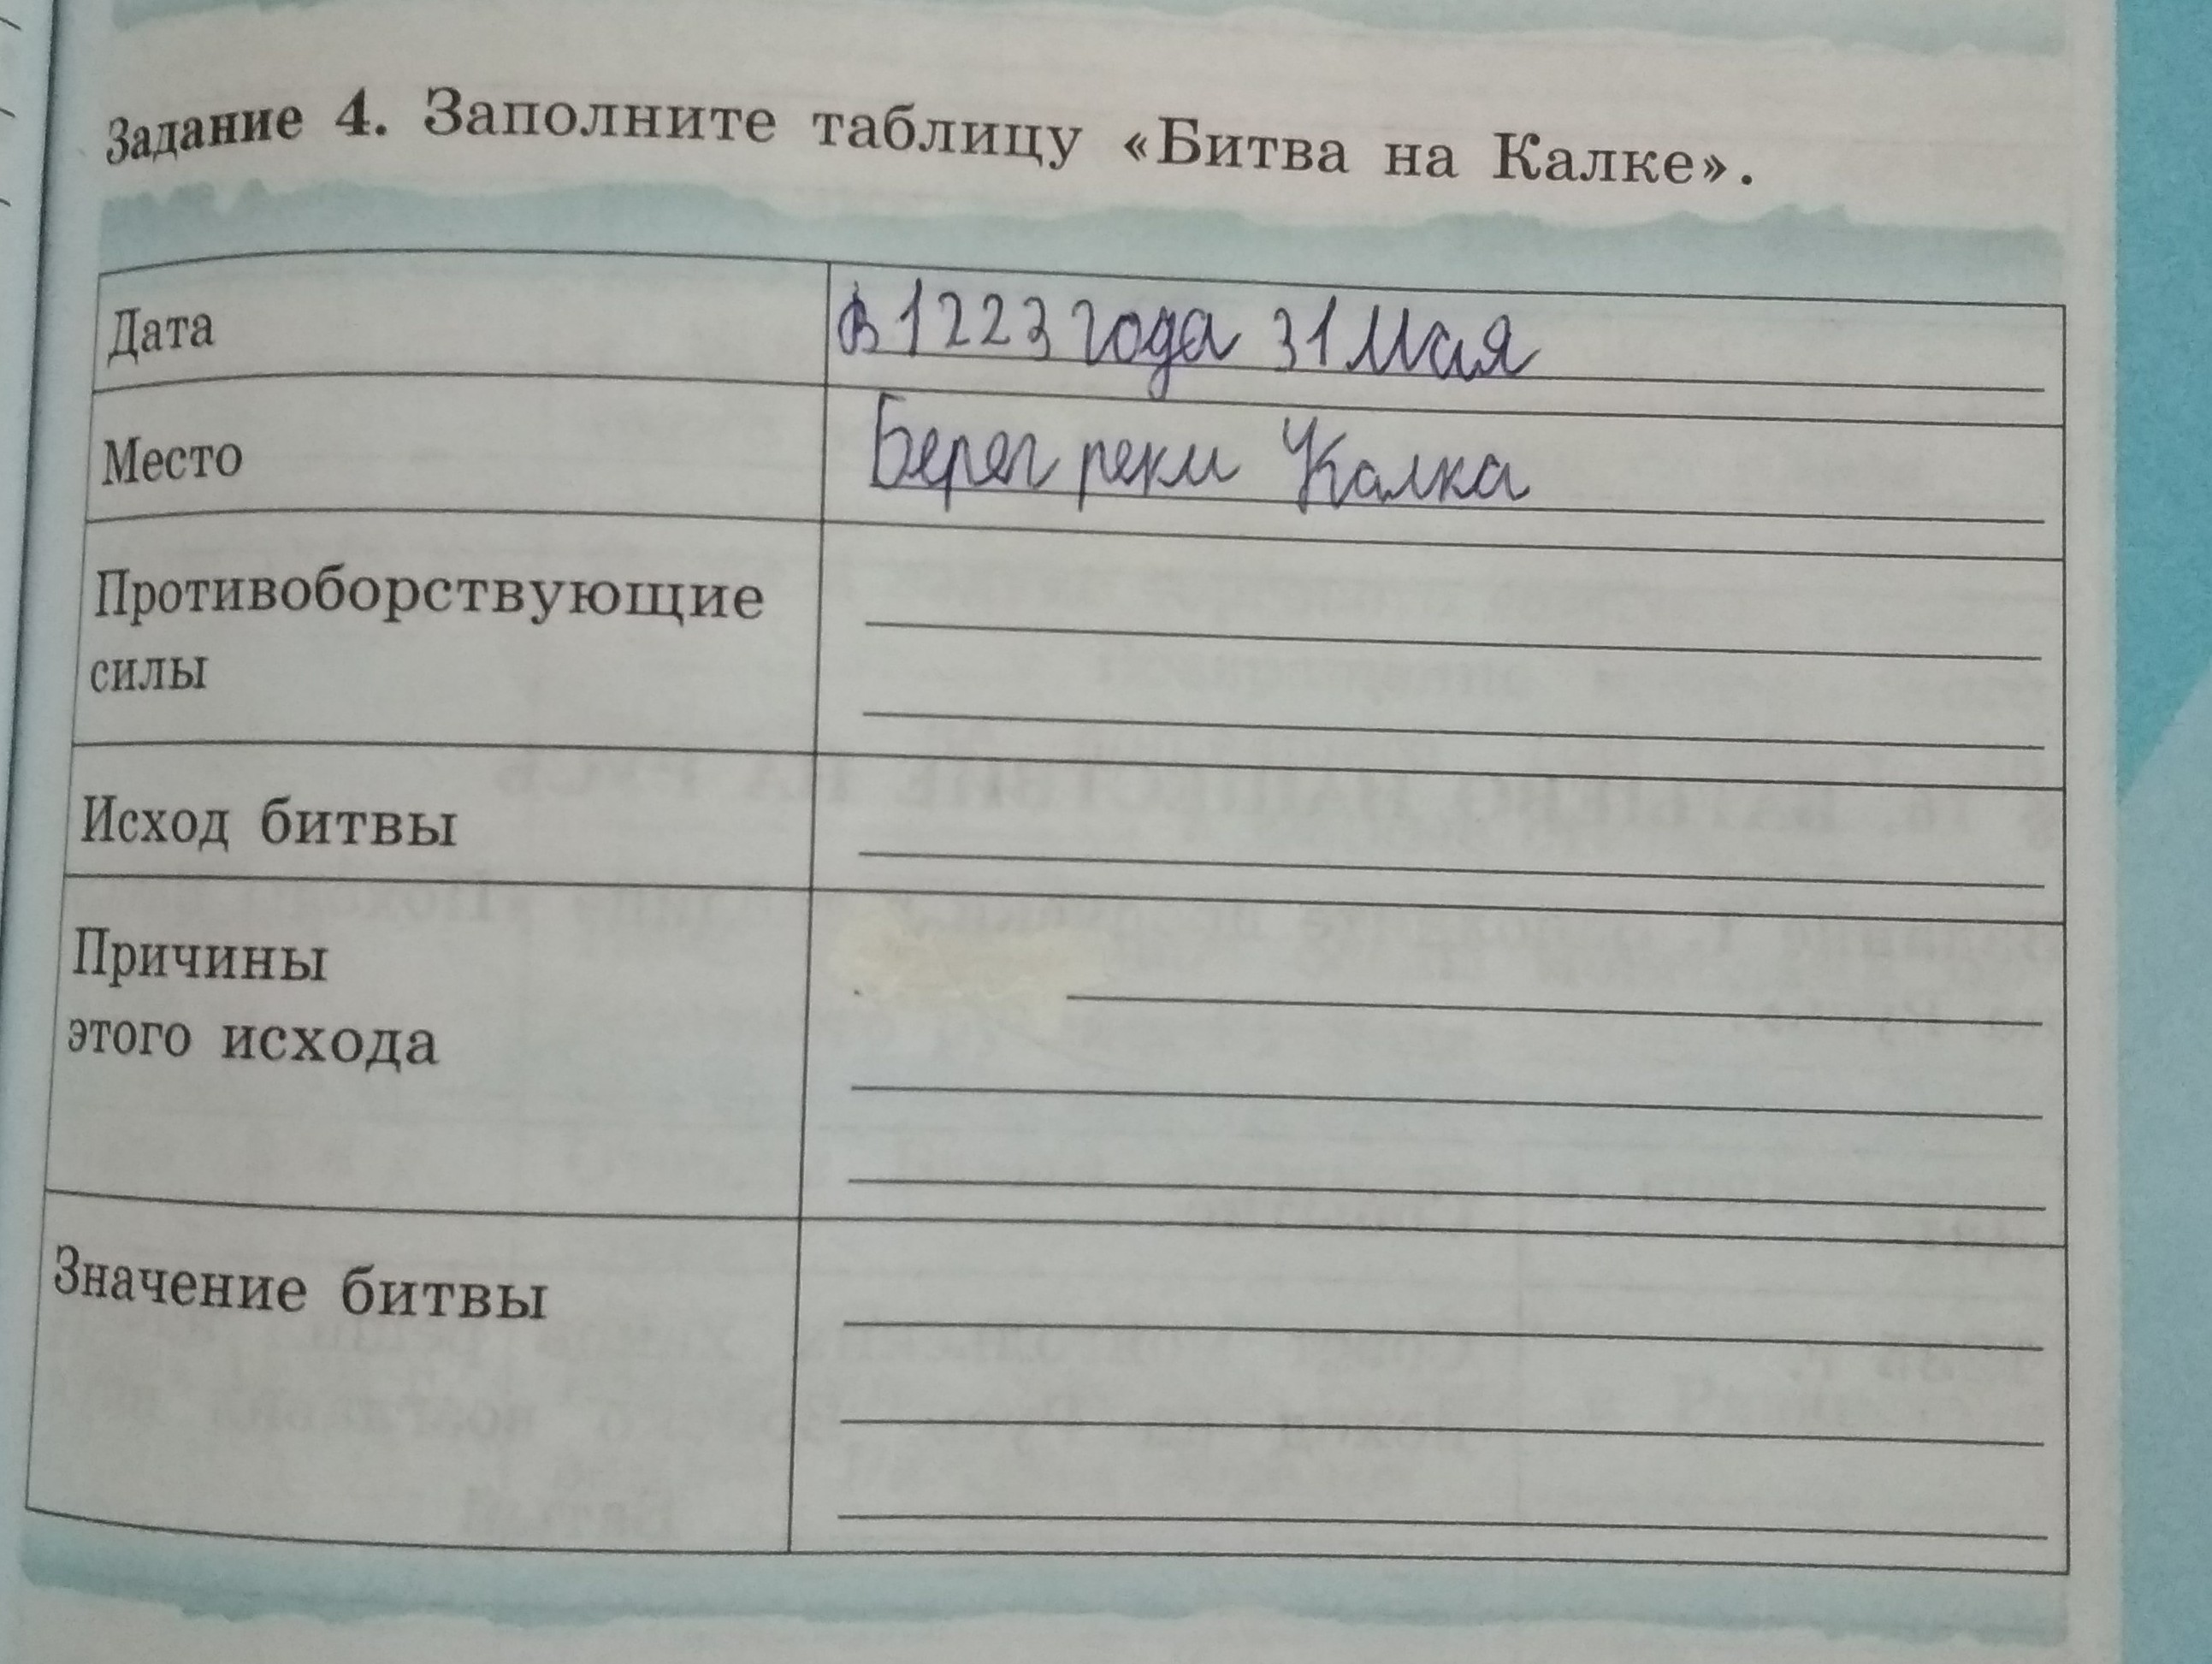 Задание 4. Заполните таблицу «Битва на Калке».
Дата
В 1223 года 31 Мая
Место
Берег реки Калка
Противоборствующие
силы
Исход битвы
Причины
этого исхода
Значение битвы